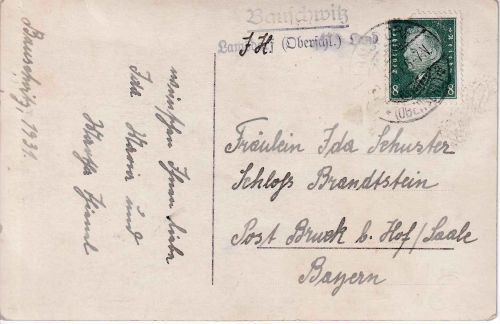 Bauschwitz, 1931.
wünschen Ihnen liebe
Ida Maria und
Martha
Bauschwitz
(Oberschl.) Land
Deutsches Reich
8 8
Fräulein Ida Schuster
Schloß Brandtstein
Post Bruck b. Hof/Saale
Bayern